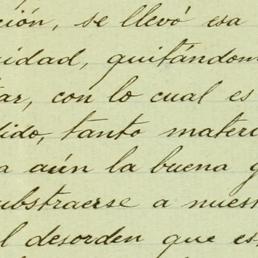 ción, se llevó esa
uidad, quitándom
tar, con lo cual es
dido, tanto materi
a aún la buena g
substraerse a nuest
l desorden que es